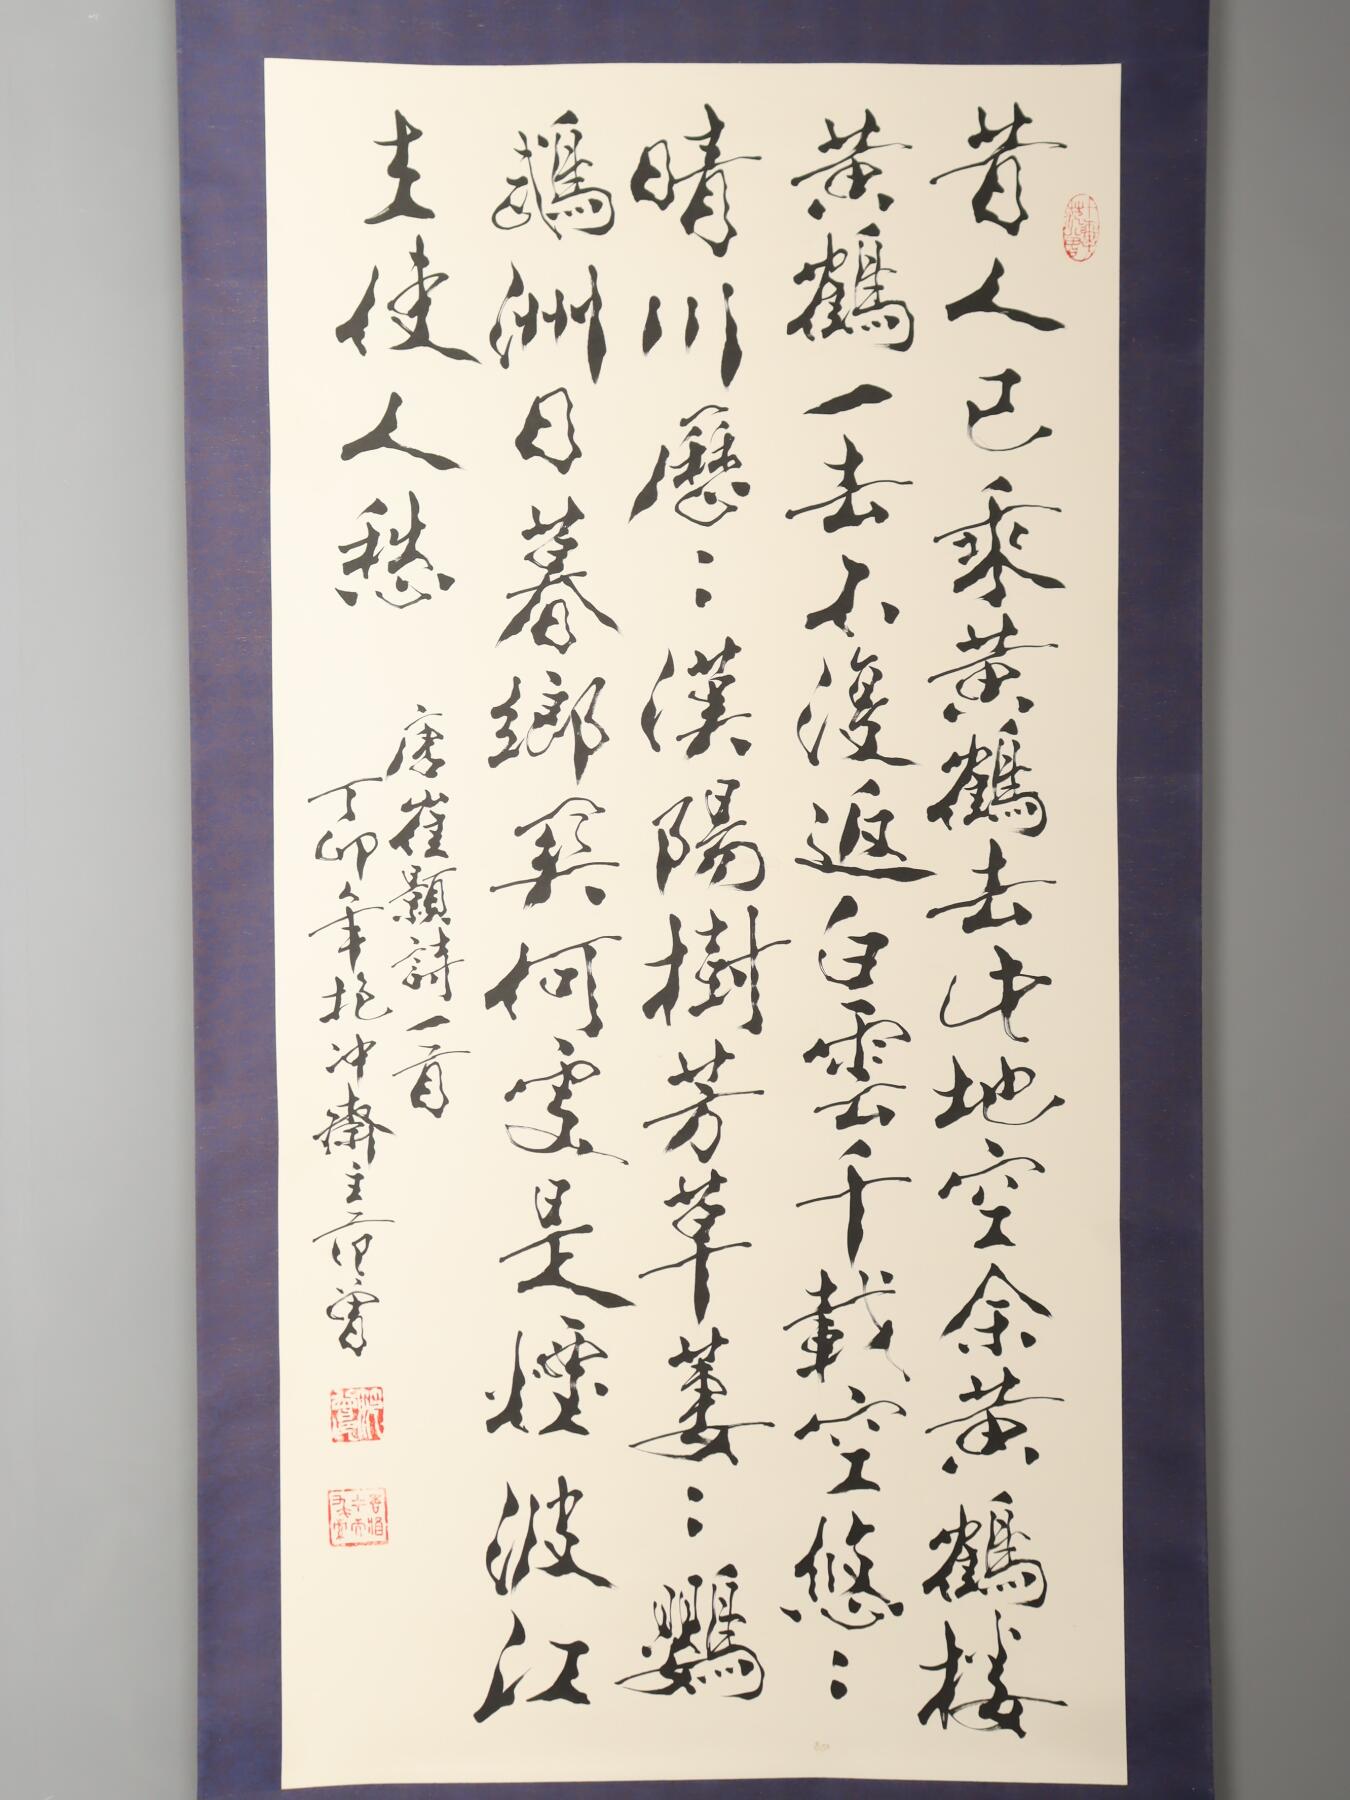 昔人已乘黄鶴去此地空余黄鶴楼
黄鶴一去不復返白雲千載空悠〻
晴川歷〻漢陽樹芳草萋〻鸚
鵡洲日暮鄉関何處是煙波江
上使人愁
唐崔顥詩一首
丁卯年抱冲齋主范曾